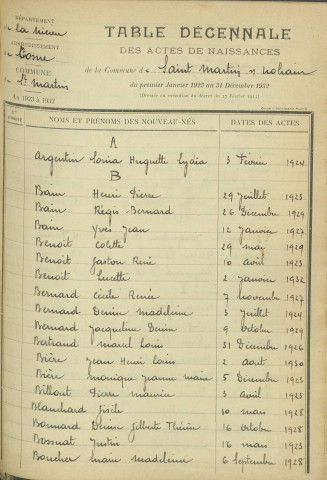 DÉPARTEMENT
de La Nièvre
TABLE DÉCENNALE
DES ACTES DE NAISSANCES
ARRONDISSEMENT
de Cosne
de la Commune de Saint Martin s/ Nohain
COMMUNE
de St Martin
du premier Janvier 1923 au 31 Décembre 1932
(Dressée en exécution du décret du
DE 1923 A 1932
NOMS ET PRÉNOMS DES NOUVEAU-NÉS DATES DES ACTES
A
Argentin Huguette 3 Février 1924
B
Bain Henri Pierre 29 Juillet 1923
Bain Régis Bernard 26 Décembre 1929
Bain Yves Jean 12 Janvier 1927
Benoit Colette 29 mai 1929
Benoit Gaston René 10 Avril 1923
Benoit Lucette 2 Janvier 1932
Bernard Cécile Renée 7 novembre 1927
Bernard Denise madeleine 3 Juillet 1924
Bernard Jacqueline Denise 9 Octobre 1929
Bertrand marcel Louis 31 Décembre 1926
Bière Jean Henri Louis 2 Aout 1930
Bière monique Jeanne marie 5 Décembre 1923
Billout Pierre maurice 3 Avril 1923
Blanchard Gisèle 10 mars 1928
Bonnard Denise Gilberte Thérèse 16 Octobre 1928
16 mars 1923
Boucher marie madeleine 6 Septembre 1928